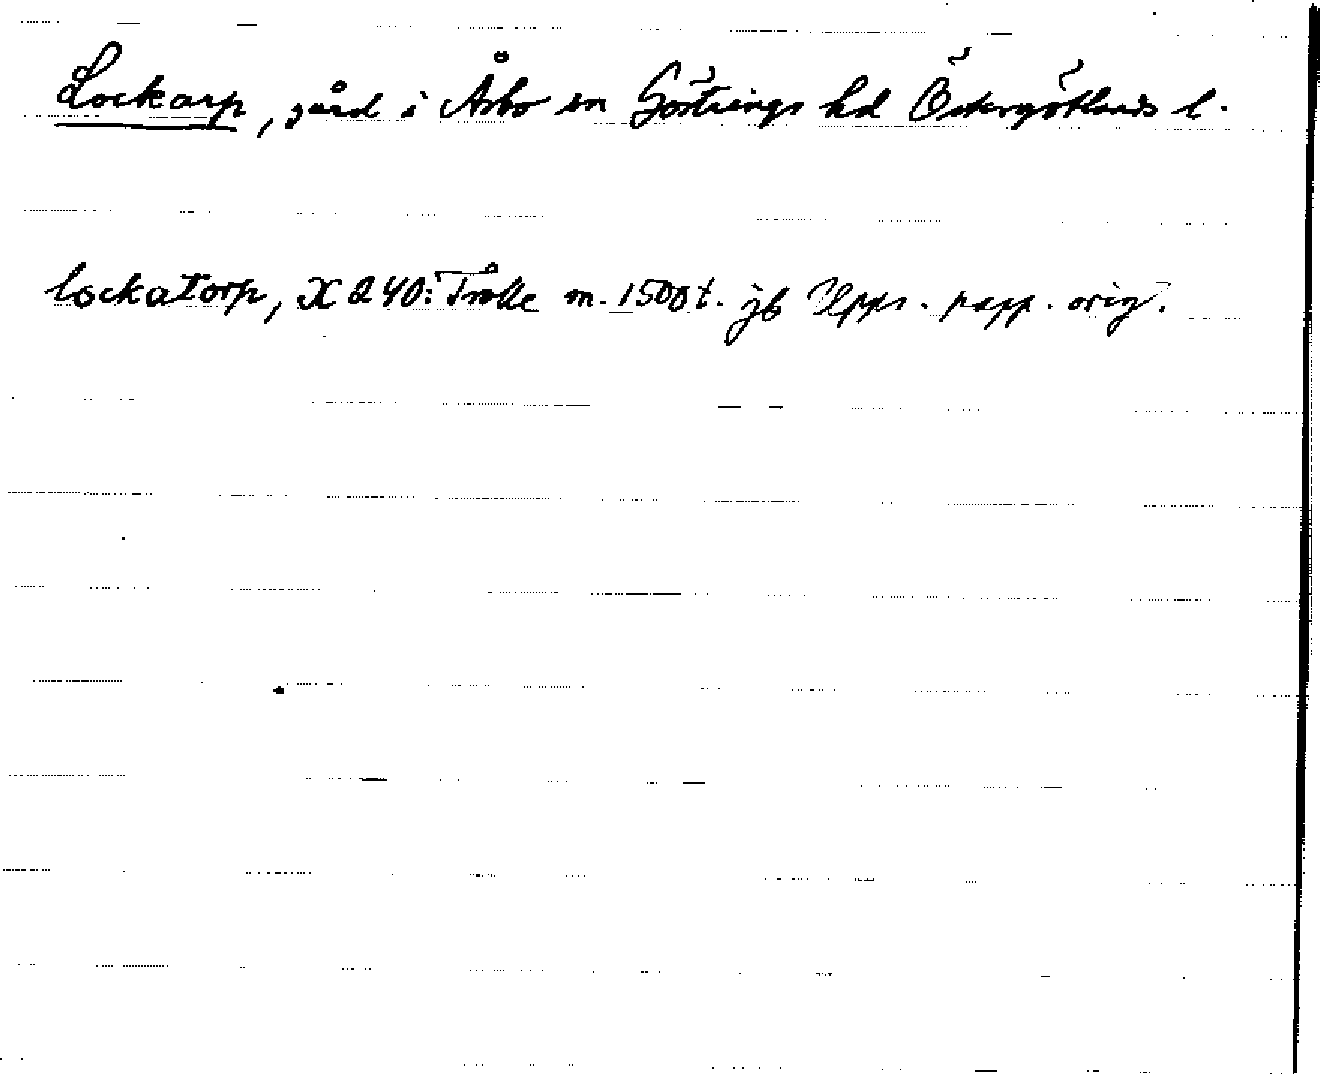 Lockarp, gård i Åsbo sn Göstrings hd Östergötlands l.
lockatorp, X 240: Trolle m. 1500 t. jb Upps. papp. orig.